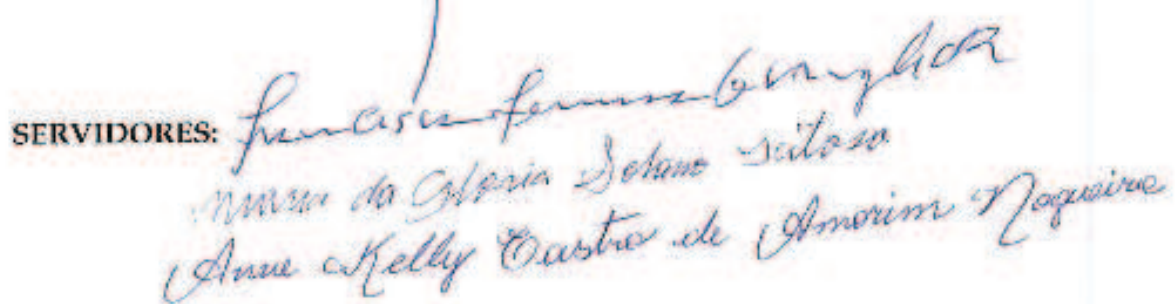 SERVIDORES: Francisca
Maria da Glória Solano Feitosa
Anne Kelly Castro de Amorim Nogueira